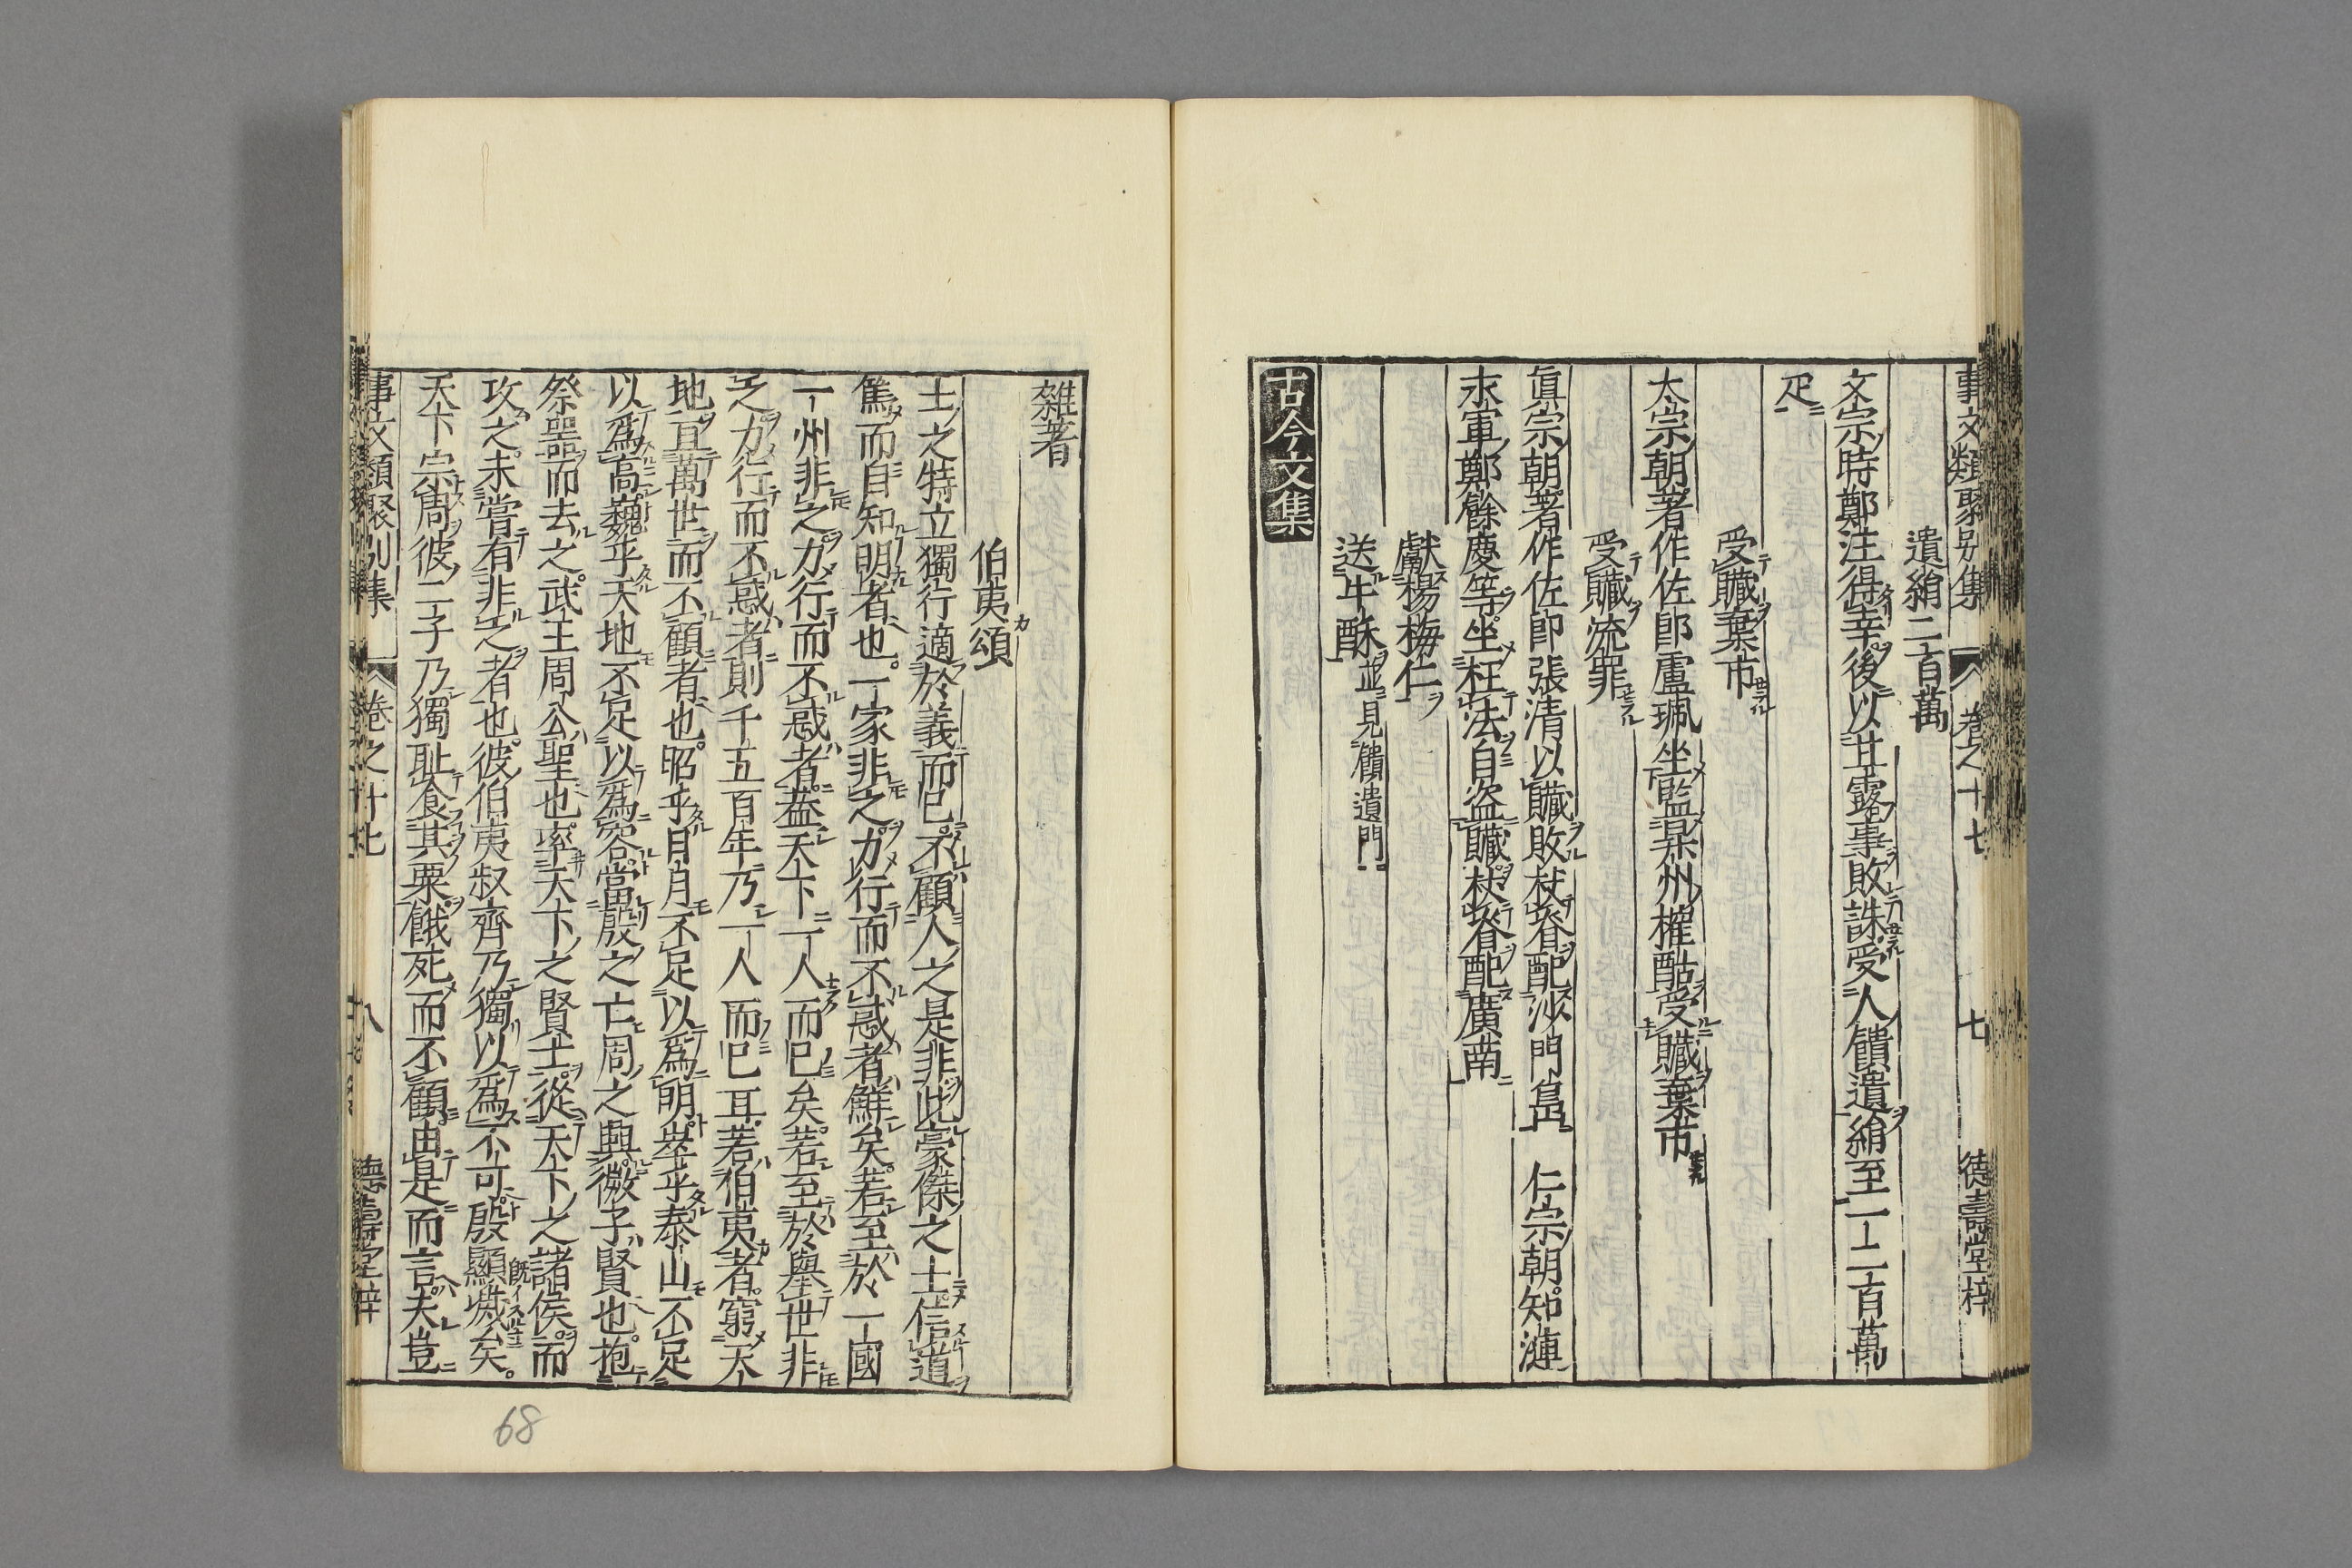 事文類聚別集 卷之十七 七 德壽堂梓
遺絹二百萬
文宗時鄭注得幸後以甘露事敗誅受人饋遺絹至一二百萬
疋
受贓棄市
太宗朝著作佐郎盧珮坐監某州榷酤受贓棄市
受贓流罪
眞宗朝著作佐郎張清以贓敗杖脊配沙門島 仁宗朝知漣
水軍鄭餘慶等坐枉法自盗贓杖脊配廣南
獻楊梅仁
送牛酥並見饋遺門
古今文集
雜著
伯夷頌
士之特立獨行適於義而已不顧人之是非此豪傑之士信道
篤而自知明者也。一家非之力行而不惑者鮮矣。若至於一國
一州非之力行而不惑者蓋天下一人而已矣。若至於舉世非
之力行而不惑者則千五百年乃一人而已耳若伯夷者。窮天
地亘萬世而不顧者也。昭乎日月不足以爲明崒乎泰山不足
以爲高巍乎天地不足以爲容當殷之亡周之興微子賢也。抱
祭器而去之。武王周公聖也率天下之賢士從天下之諸侯而
攻之未嘗有非之者也。彼伯夷叔齊乃獨以爲不可殷顯滅矣。
天下宗周彼二子乃獨耻食其粟餓死而不顧由是而言夫豈
事文類聚別集 卷之十七 八 德壽堂梓
68